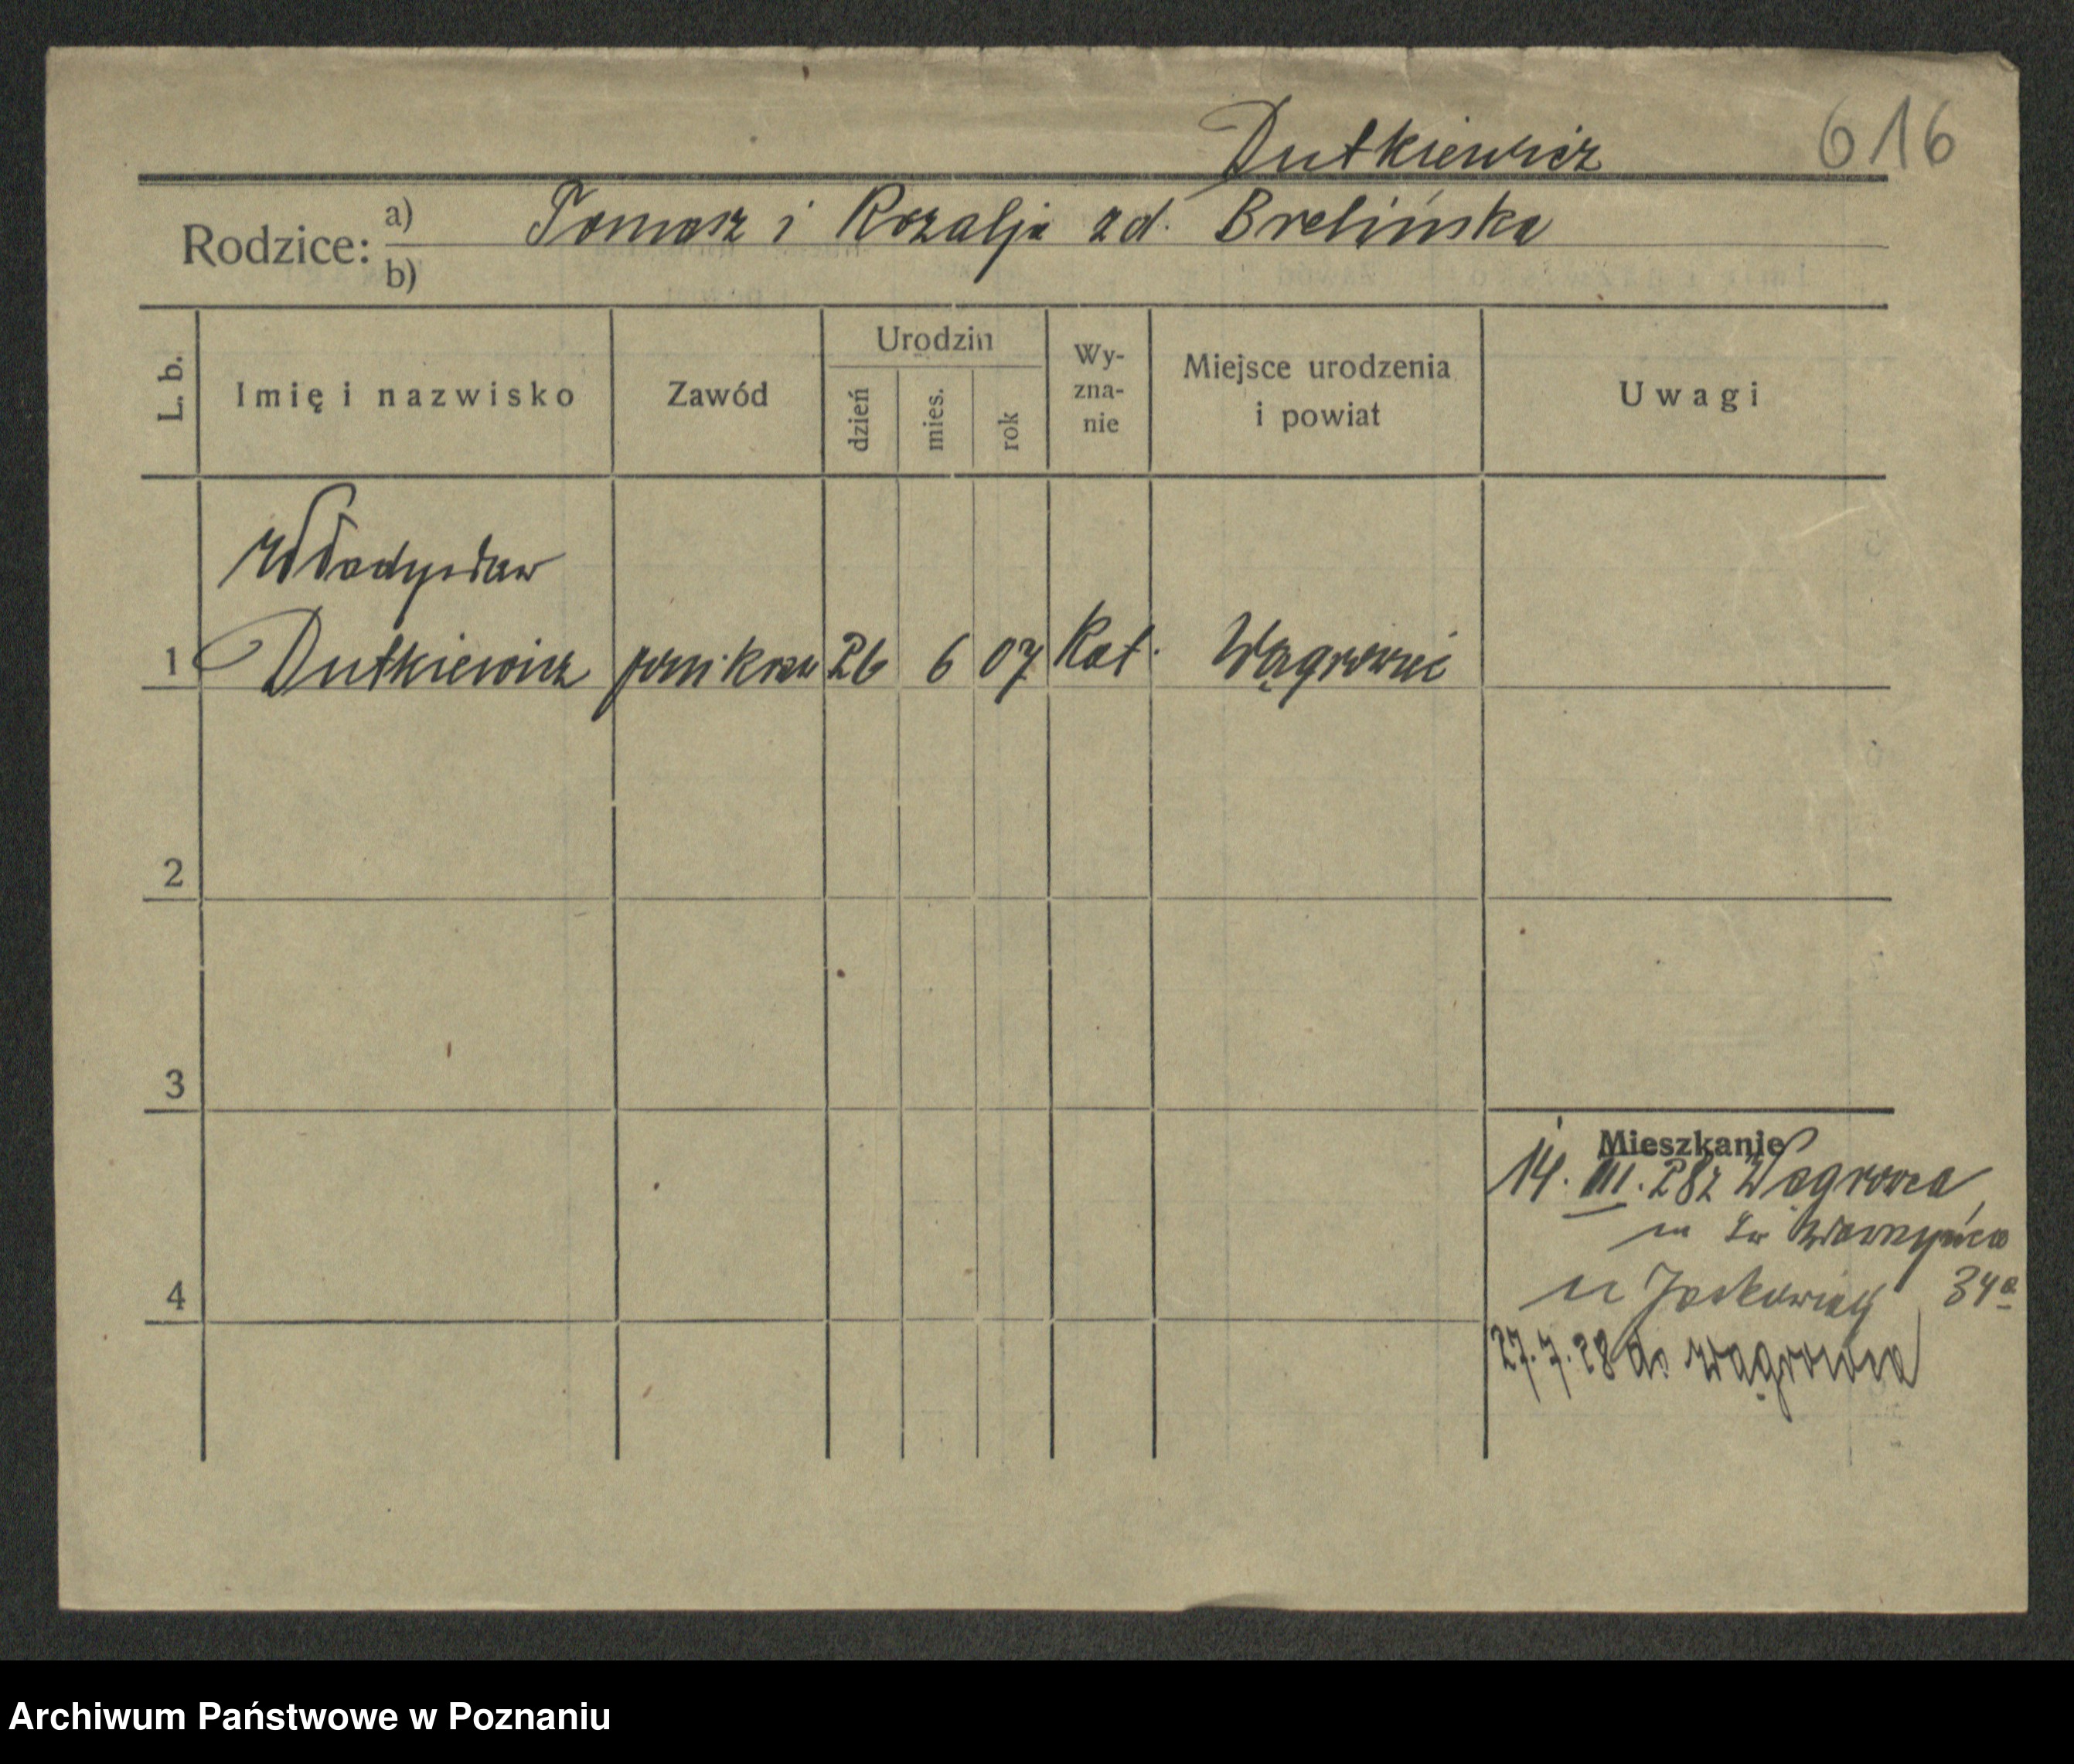 Dutkiewicz 616
Rodzice: a) Tomasz i Rozalja zd. Brelińska
b)
L. b. Imię i nazwisko Zawód Urodzin dzień mies. rok Wy-zna-nie Miejsce urodzenia i powiat Uwagi
Władysław
1 Dutkiewicz 26 6 07 Kat. Wągrowiec
2
3
Mieszkanie
14. III. 28 z Wągrowca
4
34a
27.7.28 do Wągrowca
Archiwum Państwowe w Poznaniu